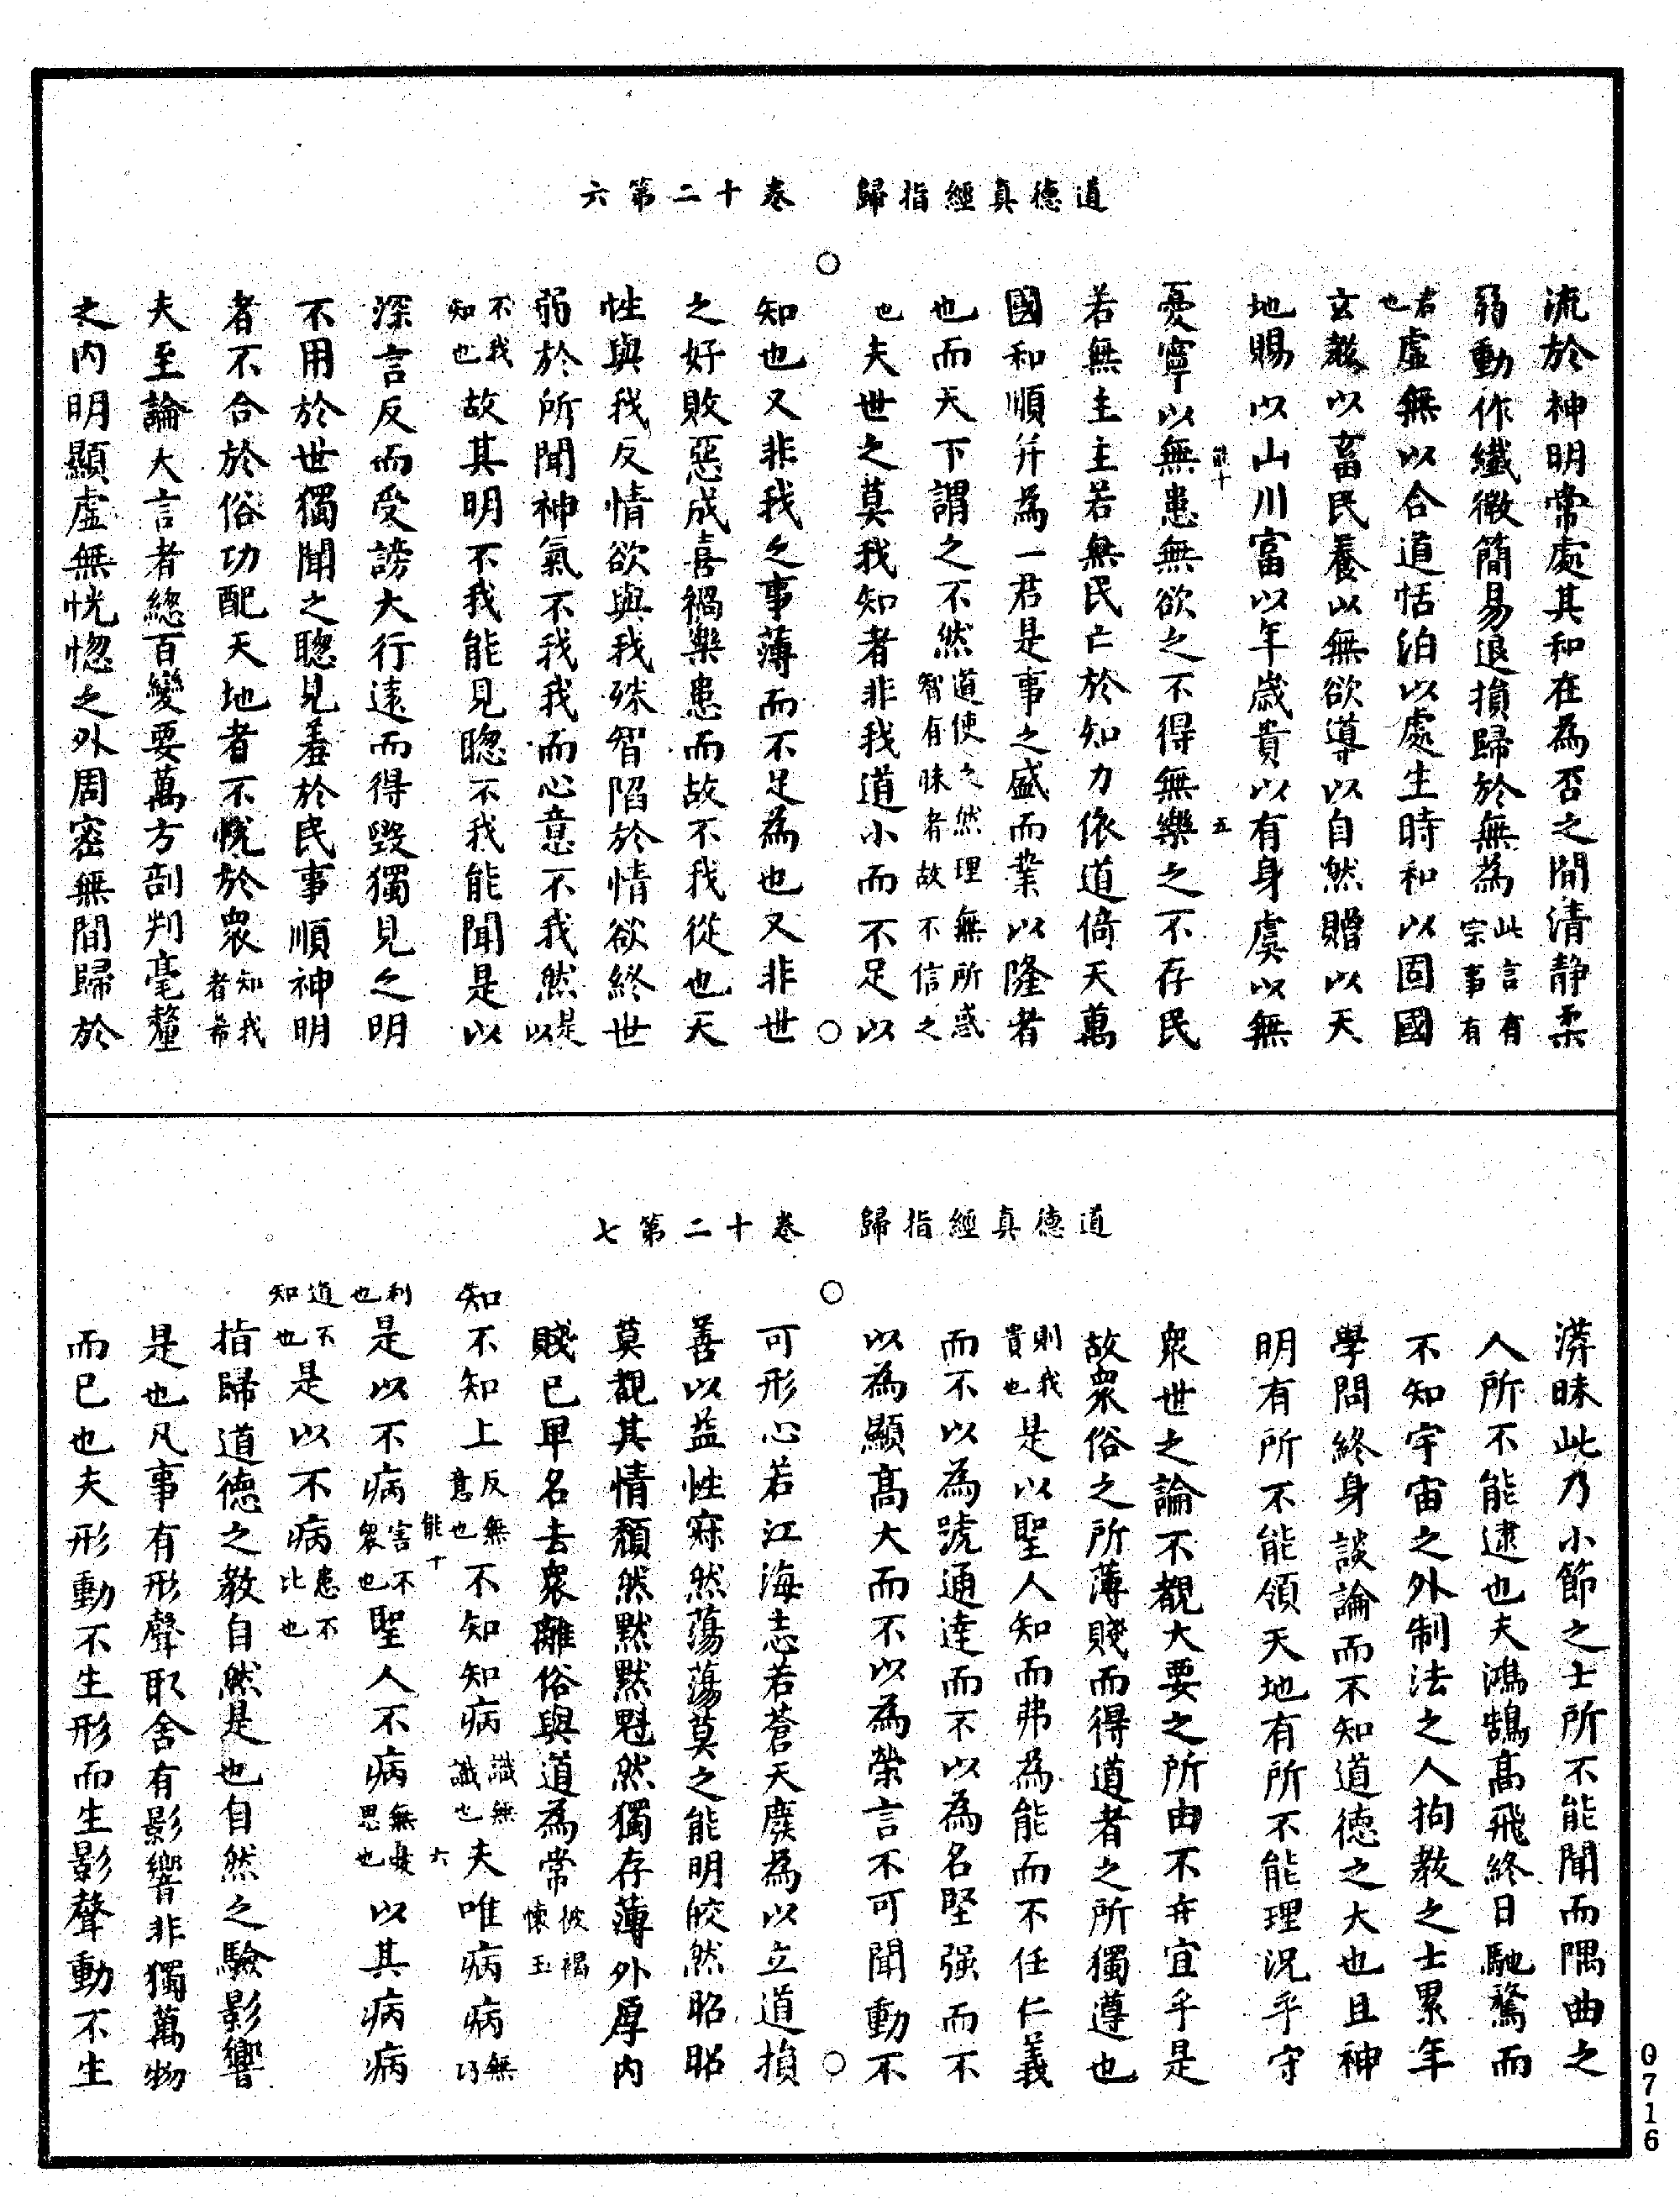 道德真經指歸　卷十二第六
流於神明常處其和在為否之間清靜柔
弱動作纖微簡易退損歸於無為此言有宗事有
君也虛無以合道恬泊以處生時和以固國
玄教以畜民養以無欲導以自然贈以天
地賜以山川富以年歲貴以有身虞以無
能十　五
憂寧以無患無欲之不得無樂之不存民
若無主主若無民亡於知力依道倚天萬
國和順并為一君是事之盛而業以隆者
也而天下謂之不然道使之然理無所惑智有昧者故不信之
也夫世之莫我知者非我道小而不足以
知也又非我之事薄而不足為也又非世
之好敗惡成喜禍樂患而故不我從也天
性與我反情欲與我殊智陷於情欲終世
弱於所聞神氣不我我而心意不我然是以
不我知也故其明不我能見聰不我能聞是以
深言反而受謗大行遠而得毀獨見之明
不用於世獨聞之聰見羞於民事順神明
者不合於俗功配天地者不悅於眾知我者希
夫至論大言者總百變要萬方剖判毫釐
之內明顯虛無恍惚之外周密無間歸於
道德真經指歸　卷十二第七
漭昧此乃小節之士所不能聞而隅曲之
人所不能逮也夫鴻鵠高飛終日馳騖而
不知宇宙之外制法之人拘教之士累年
學問終身談論而不知道德之大也且神
明有所不能領天地有所不能理況乎守
眾世之論不覩大要之所由不亦宜乎是
故眾俗之所薄賤而得道者之所獨遵也
則我貴也是以聖人知而弗為能而不任仁義
而不以為號通達而不以為名堅强而不
以為顯高大而不以為榮言不可聞動不
可形心若江海志若蒼天廢為以立道損
善以益性寐然蕩蕩莫之能明皎然昭昭
莫覩其情頹然默默魁然獨存薄外厚內
賤已卑名去眾離俗與道為常彼褐懷玉
知不知上反無意也不知知病識無識也夫唯病病無巧
能十　六
利也是以不病害不眾也聖人不病無憂思也以其病病
道不知也是以不病患不比也
指歸道德之教自然是也自然之驗影響
是也凡事有形聲取舍有影響非獨萬物
而已也夫形動不生形而生影聲動不生
0716